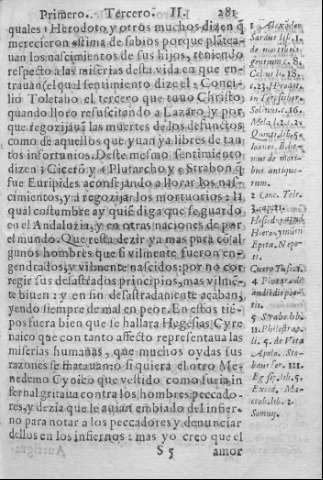 Primero. Tercero. II. 281
quales: Herodoto, y otros muchos dizen q̃
merecieron estima de sabios porque platea-
uan los nascimientos de sus hijos, teniendo
respecto a las miserias desta vida en que en-
trauan: el qual sentimiento dize el Conci-
lio Toletano el tercero que tuuo Christo
quando lloro resuscitando a Lazaro, y por-
que regozijauã las muertes de los defunctos
como de aquellos que yuan ya libres de tan-
tos infortunios. Deste mesmo sentimiento
dizen Cicero y Plutarcho y Strabon q̃
fue Euripides aconsejando a llorar los nas-
cimientos, y a regozijar los mortuorios: la
qual costumbre ay quiẽ diga que se guardo
en el Andaluzia, y en otras naciones de por
el mundo. Que resta dezir ya mas para cõ al-
gunos hombres que si vilmente fueron en-
gendrados, y vilmente nascidos: por no cor-
regir sus desastrados principios, mas vilmẽ-
te biuen: y en fin desastradamente acaban,
yendo siempre de mal en peor. En estos tiẽ-
pos fuera bien que se hallara Hegesias Cyre
naico que con tanto affecto representaua las
miserias humanas, que muchos oydas sus
razones se matauan: o si quiera el otro Me-
nedemo Cynico que vestido como furia in-
fernal gritaua contra los hombres peccado-
res, y dezia que le auian embiado del infier-
no para notar a los peccadores y denunciar
dellos en los infiernos: mas yo creo que el
S 5 amor
1 Alexander
Sardus lib. 1.
de morib.
gentium c. 8.
Celius li. 18.
c. 23.
Solinus c. 16.
Mela lib. 2.
lib. 5.
Ioannes
mus de mori-
bus antiquo-
rum.
2 Conc. Tole.
3.
Hieronymum
Epita. Nepo-
ti.
Cicero Tusc. 1.
4 Plutar. de
audiẽdis poe-
tis.
5 Strabo lib.
11. Philostr. apo
li. 4. de Vita
Apolo. Sto-
baeus ser. 121.
lib. 5.
Ma-
crob. lib. 1.
Somn.